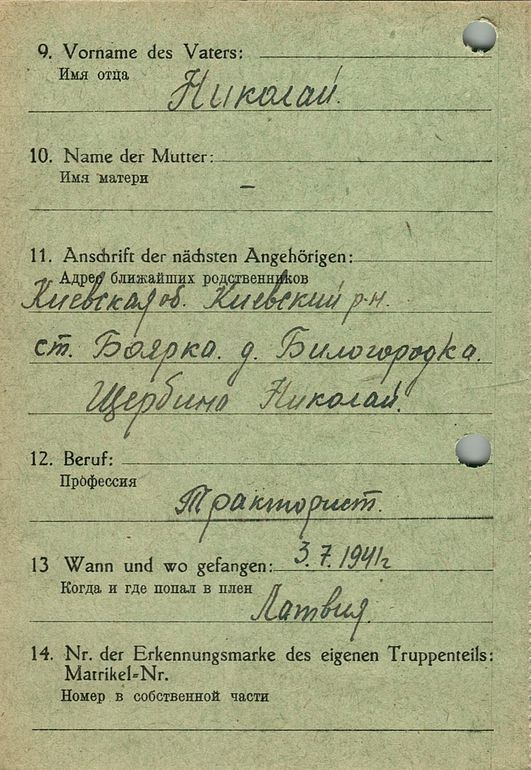 9. Vorname des Vaters:
Имя отца
Николай.
10. Name der Mutter:
Имя матери
–
11. Anschrift der nächsten Angehörigen:
Адрес ближайших родственников
Киевская об. Киевский р-н.
ст. Боярка. д. Билогородка.
Щербина Николай.
12. Beruf:
Профессия
Тракторист.
13 Wann und wo gefangen: 3.7.1941г
Когда и где попал в плен
Латвия.
14. Nr. der Erkennungsmarke des eigenen Truppenteils:
Matrikel=Nr.
Номер в собственной части